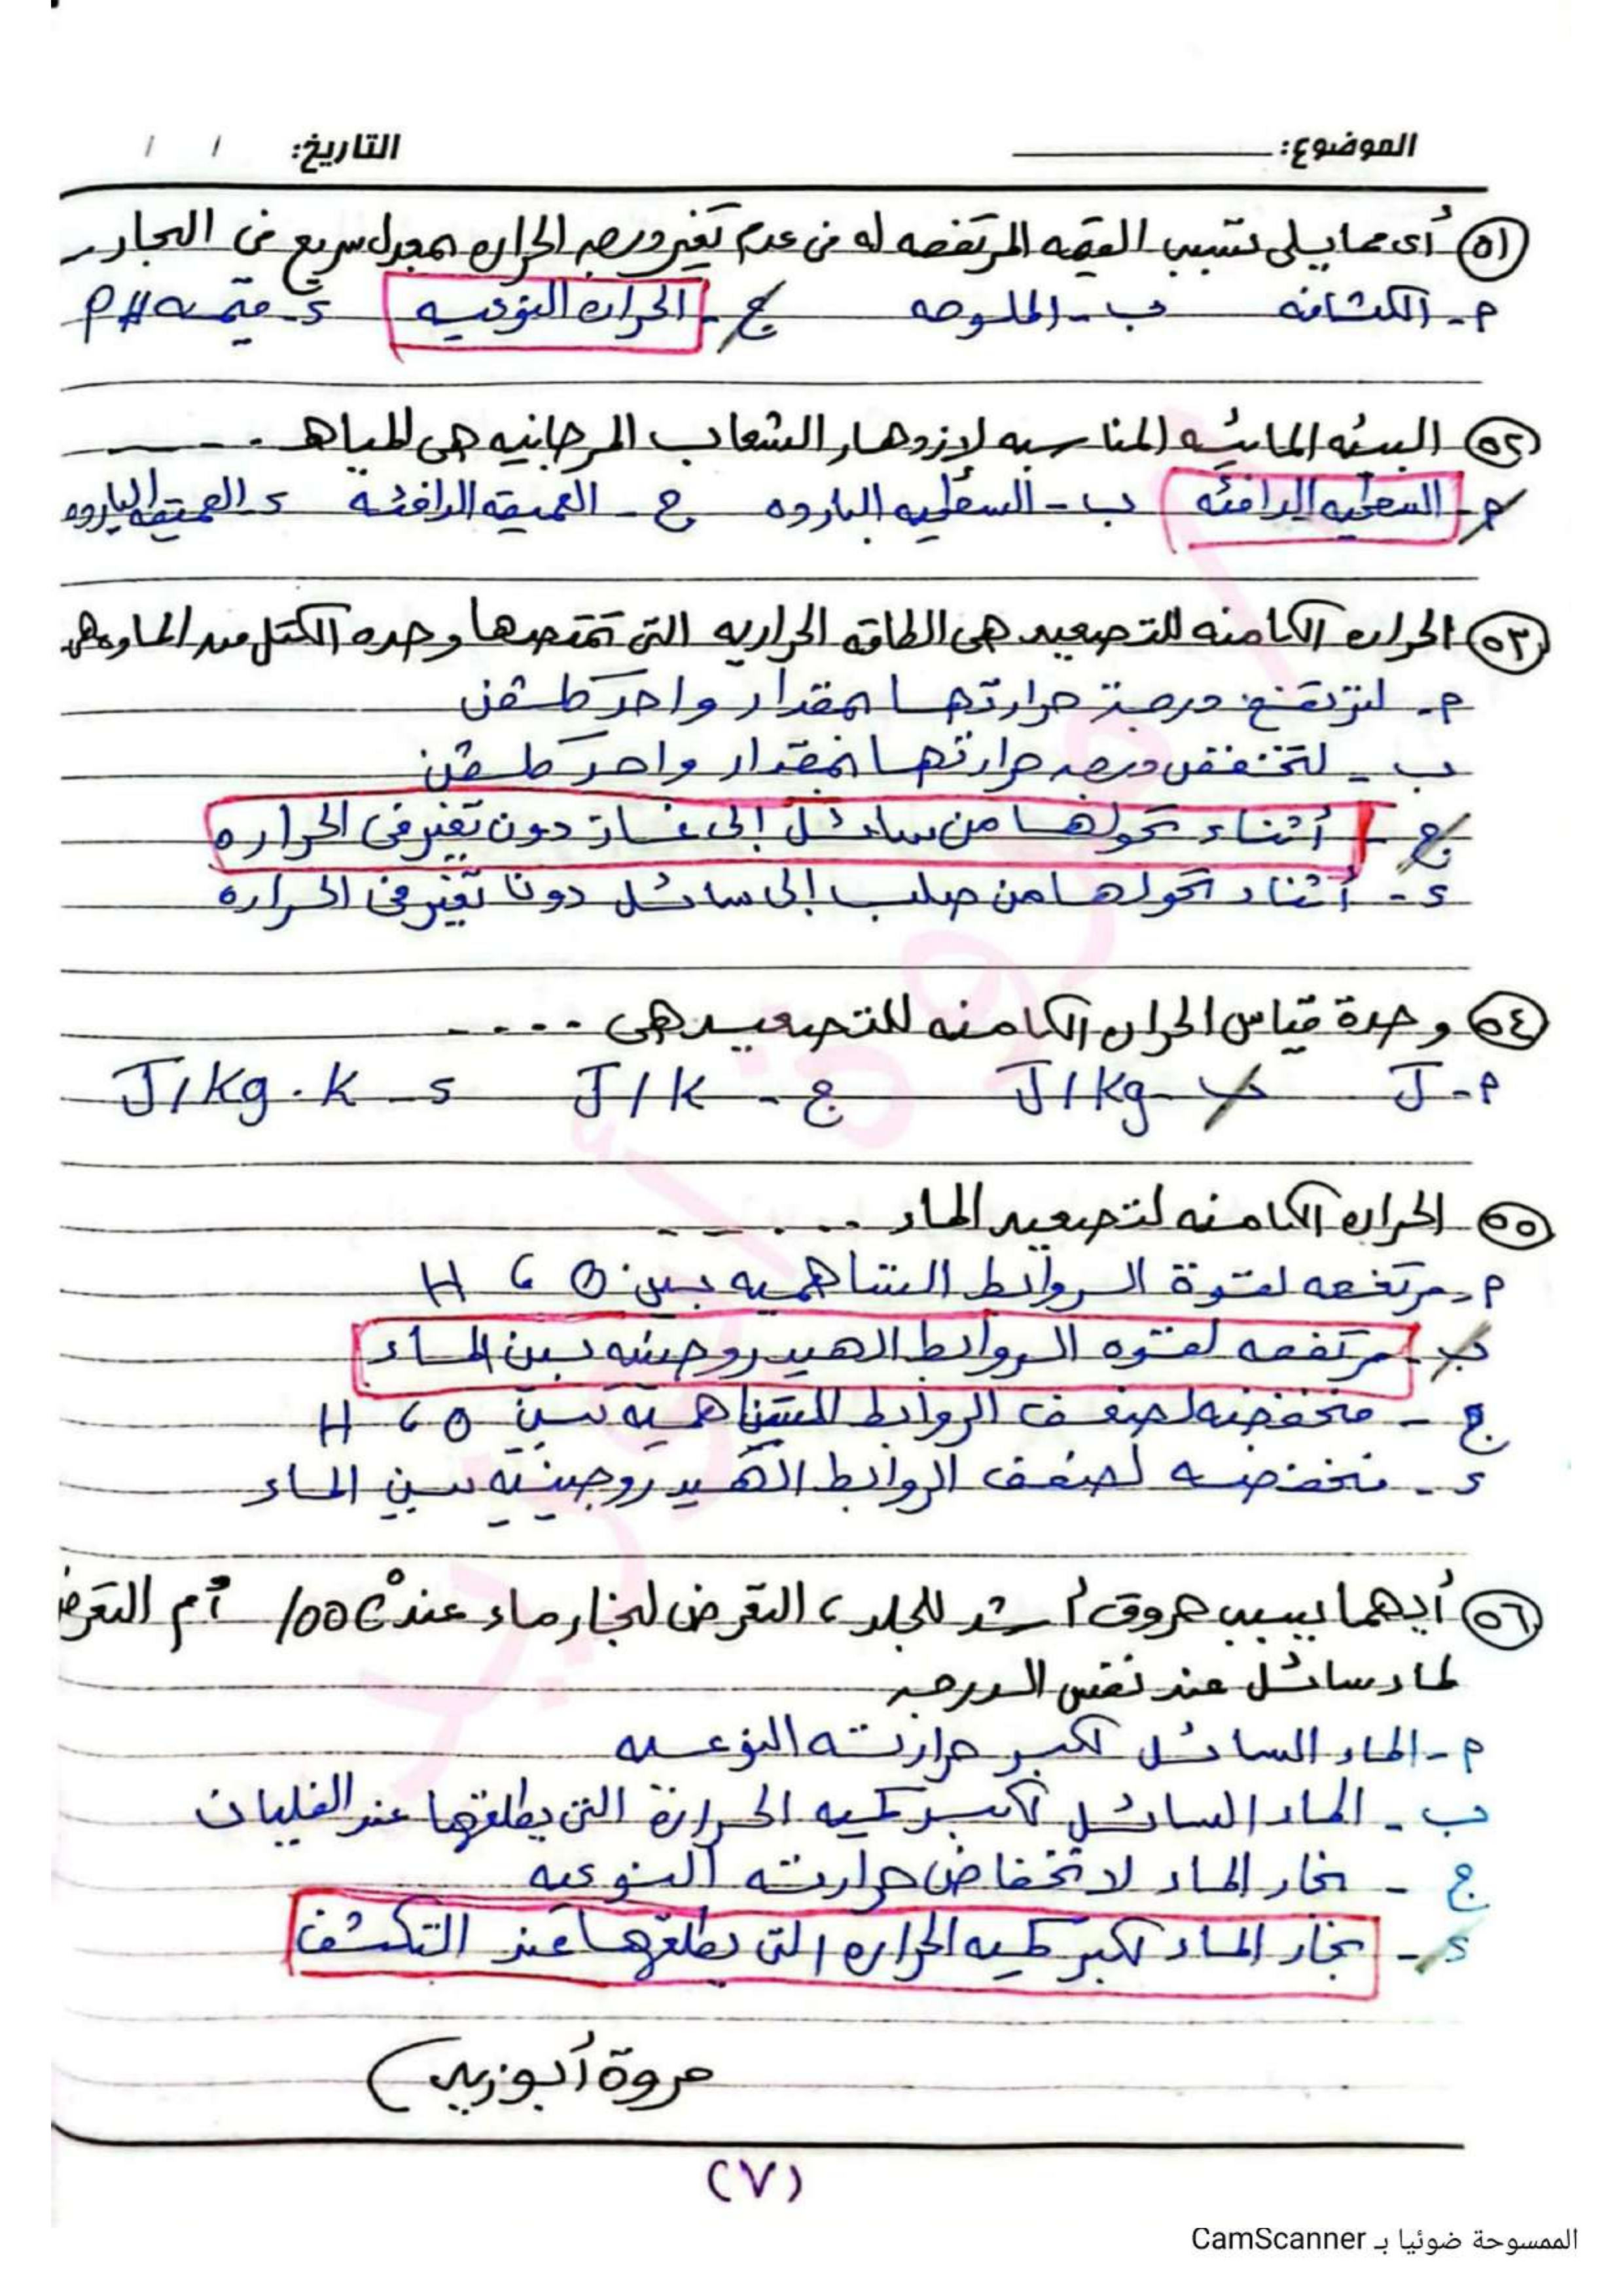 الموضوع: التاريخ: / /
٥١ أى مما يلى تتسبب القيمه المرتفعه له فى عدم تغير درجه الحراره بمعدل سريع فى البحار
م - الكثافه ب - الملوحه ج - الحراره النوعيه د - قيمه PH
٥٢ البيئه المائيه المناسبه لازدهار الشعاب المرجانيه هى المياه ....
م - السطحيه الدافئه ب - السطحيه البارده ج - العميقة الدافئه د - العميقه البارده
٥٣ الحراره الكامنه للتصعيد هى الطاقه الحراريه التى تمتصها وحده الكتل من الماده
م - لترتفع درجة حرارتها بمقدار واحد كلفن
ب - لتنخفض درجه حرارتها بمقدار واحد كلفن
ج - أثناء تحولها من سائل إلى غاز دون تغير فى الحراره
د - أثناء تحولها من صلب إلى سائل دون تغير فى الحراره
٥٤ وحدة قياس الحراره الكامنه للتصعيد هى ....
م - J ب - J/kg ج - J/k د - J/kg.k
٥٥ الحراره الكامنه لتصعيد الماء .....
م - مرتفعه لقوة الروابط التساهميه بين O ، H
ب - مرتفعه لقوه الروابط الهيدروجينيه بين الماء
ج - منخفضه لضعف الروابط التساهمية بين O ، H
د - منخفضه لضعف الروابط الهيدروجينيه بين الماء
٥٦ أيهما يسبب حروق أشد للجلد ، التعرض لبخار ماء عند 100C° أم التعرض
لماء سائل عند نفس الدرجه
م - الماء السائل لكبر حرارته النوعيه
ب - الماء السائل لكبر كميه الحرارة التى يطلقها عند الغليان
ج - بخار الماء لانخفاض حرارته النوعيه
د - بخار الماء لكبر كميه الحراره التى يطلقها عند التكثف
مروة أبوزيد
(٧)
الممسوحة ضوئيا بـ CamScanner